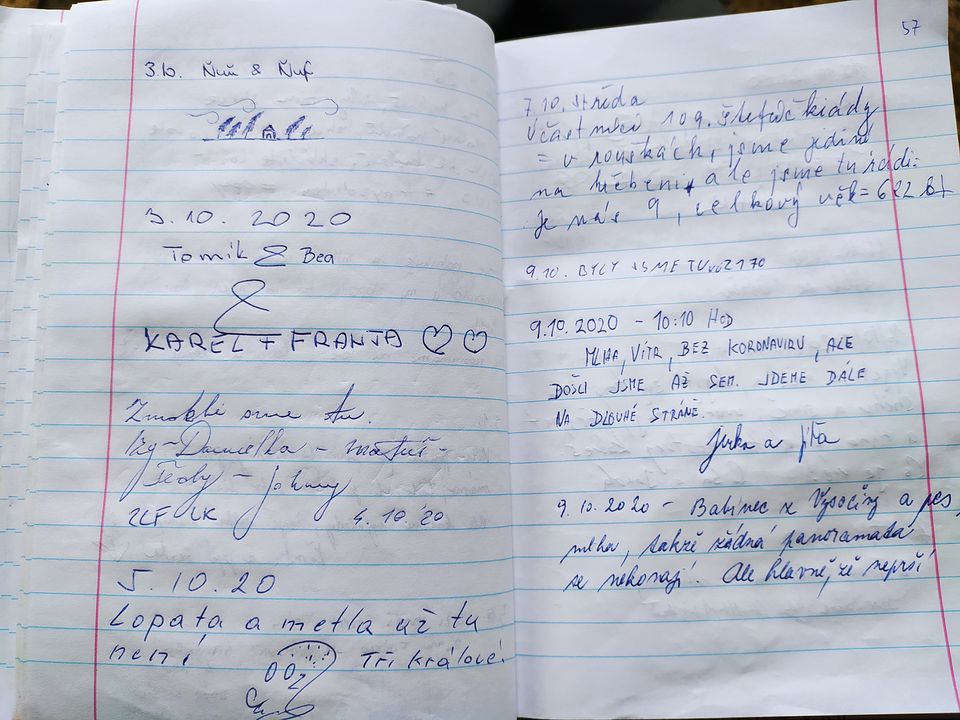 3.10. Ňuň & Ňuf
3.10.2020
Tomík & Bea
&
KAREL + FRANTA
Zmokli sme tu.
Danielka -
- Johny
2LF UK 4.10.'20
5.10.20
Lopata a metla už tu
není
Tři králové!
57
7.10. středa
Účastníci 109. Štefučkiády
= v rouškách, jsme jediní
na hřebeni, ale jsme tu rádi.
Je nás 9, celkový věk = 622 let
9.10. BYLY JSME TU 2170
9.10.2020 - 10:10 HOD
MLHA, VÍTR, BEZ KORONAVIRU, ALE
DOŠLI JSME AŽ SEM. JDEME DÁLE
NA DLOUHÉ STRÁNĚ.
Jirka a Jíťa
9.10.2020 - Babinec z Vysočiny a pes,
mlha, takže žádná panoramata
se nekonají. Ale hlavně, že neprší